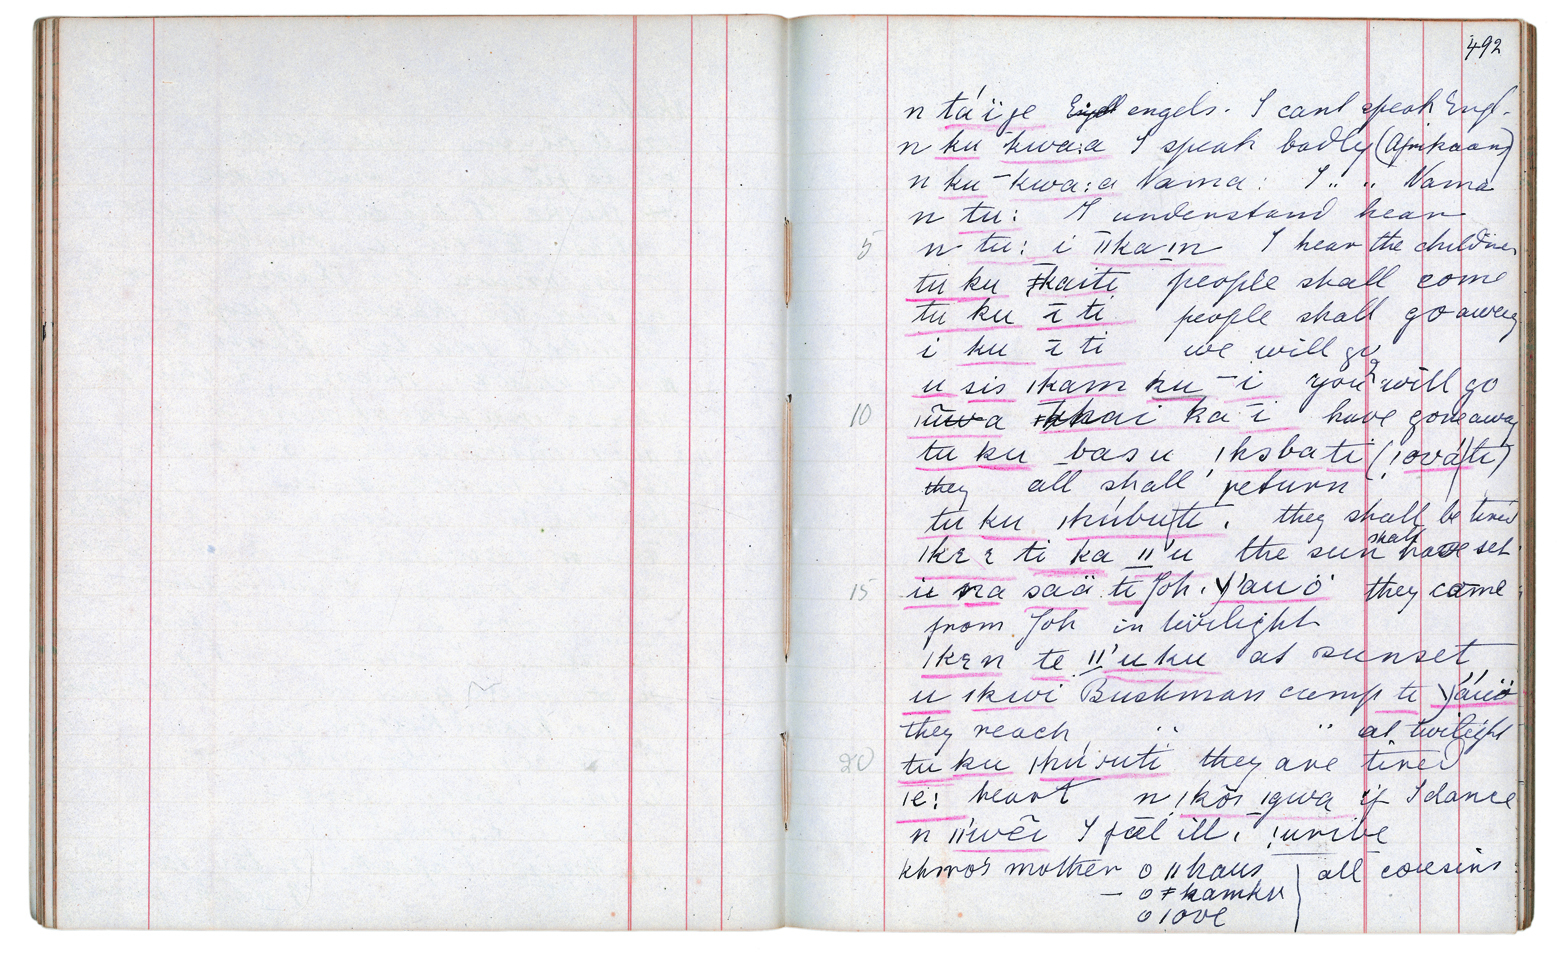 492
n tá'ïje engels. I cant speak Engl.
n ku kwa:a I speak badly (Afrikaans)
n ku - kwa:a Nama: I " " Nama
n tu: I understand hear
5 n tu: i ǁkaǀn I hear the children
tu ku ǂkaiti people shall come
tu ku ī ti people shall go away
i ku ī ti we will go
u sis ǀkam ku - i you 2 will go
10 kai ka i have gone away
tu ku basu ǃksbati (ǃováti)
they all shall return
tu ku ǀkúbuti. they shall be tired
ǀkɛɛ ti ka ǁ'u the sun shall have set
15 u na saä ti Joh. they came
from Joh in twilight
ǀkɛn te ǁ'uku at sunset
u ǀkwi Bushman camp ti
they reach " " at twilight
20 tu ku ǀkúruti they are tired
ǀe: heart n ǃkõi ǀgwa if I dance
n ǁwẽi I feel ill. ǃuribe
mother o ǁkaus all cousins
— o ǂkamku
o ǀove